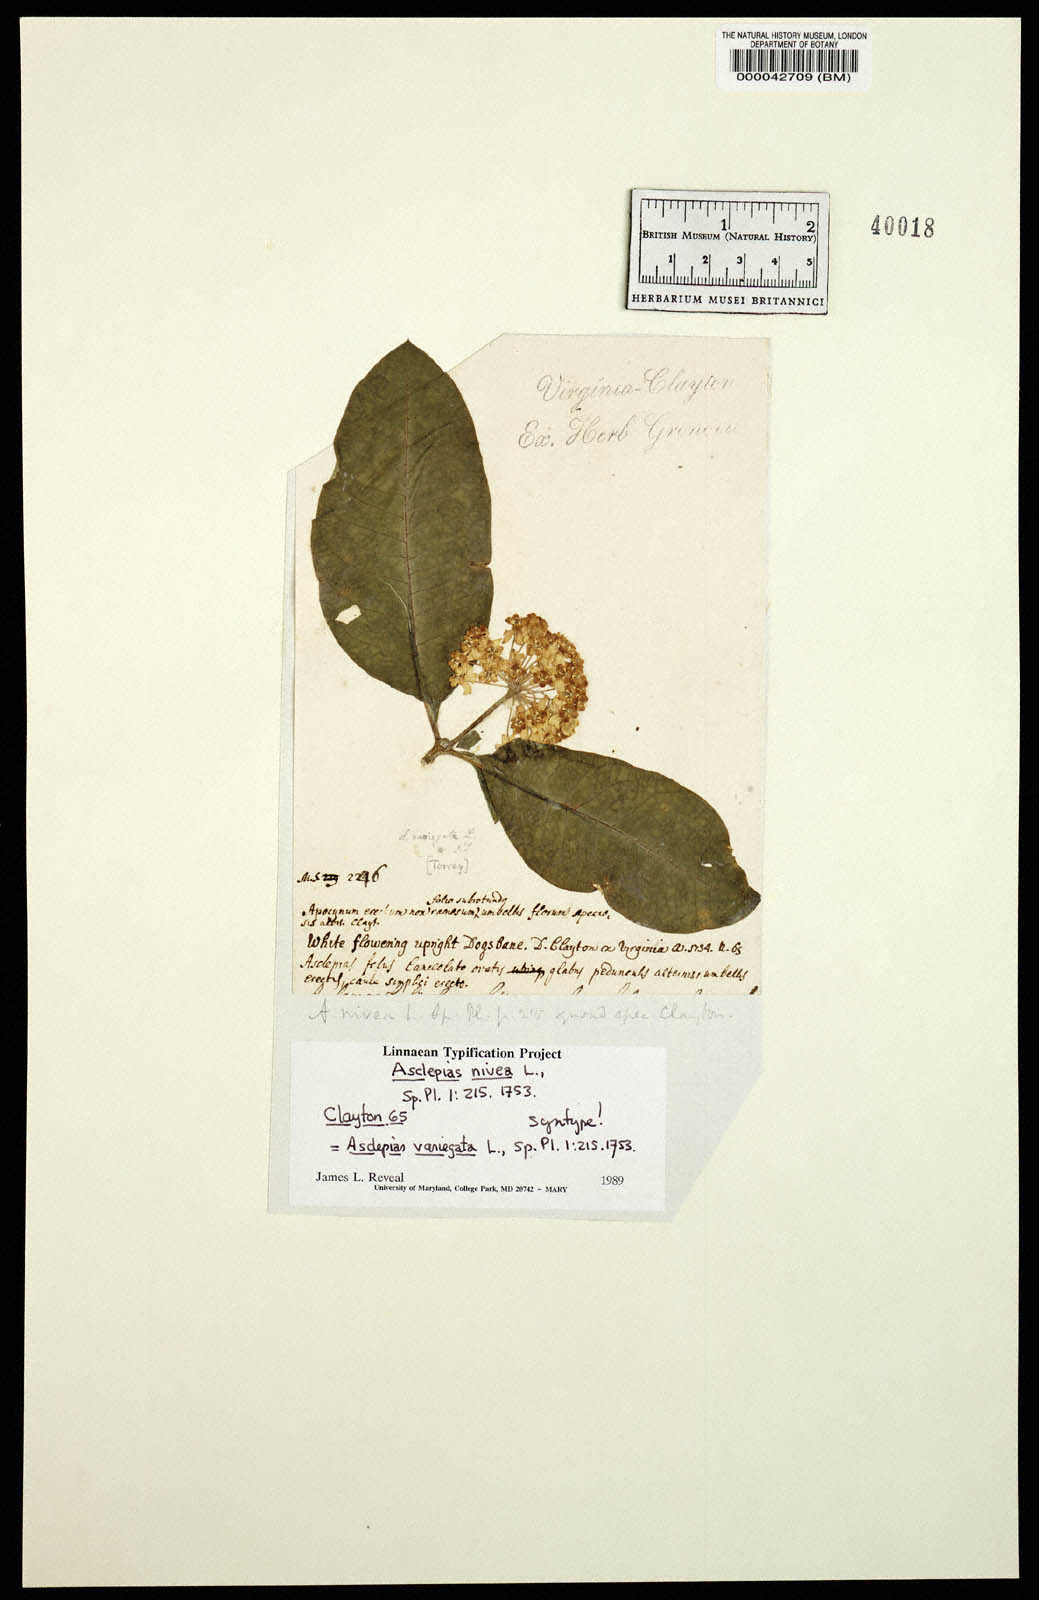 THE NATURAL HISTORY MUSEUM, LONDON
DEPARTMENT OF BOTANY
000042709 (BM)
1 2
BRITISH MUSEUM (NATURAL HISTORY)
1 2 3 4 5
HERBARIUM MUSEI BRITANNICI
40018
Virginia-Clayton
Ex. Herb Gronovii
A. variegata L.
[Torrey]
folio subrotundo
Apocynum erectum non ramosum, umbellis florum specio,
sis albis. Clayt.
White flowering upright Dogsbane. D. Clayton ex Virginia N. 65
Asclepias foliis lanceolato ovatis glabris pedunculis alternis umbellis
erectis caule simplici erecto.
A nivea L. Sp. Pl. p. 215 quoad spec. Clayton.
Linnaean Typification Project
Asclepias nivea L.,
Sp. Pl. 1: 215. 1753.
Clayton 65
syntype!
= Asclepias variegata L., Sp. Pl. 1:215. 1753.
James L. Reveal 1989
University of Maryland, College Park, MD 20742 - MARY